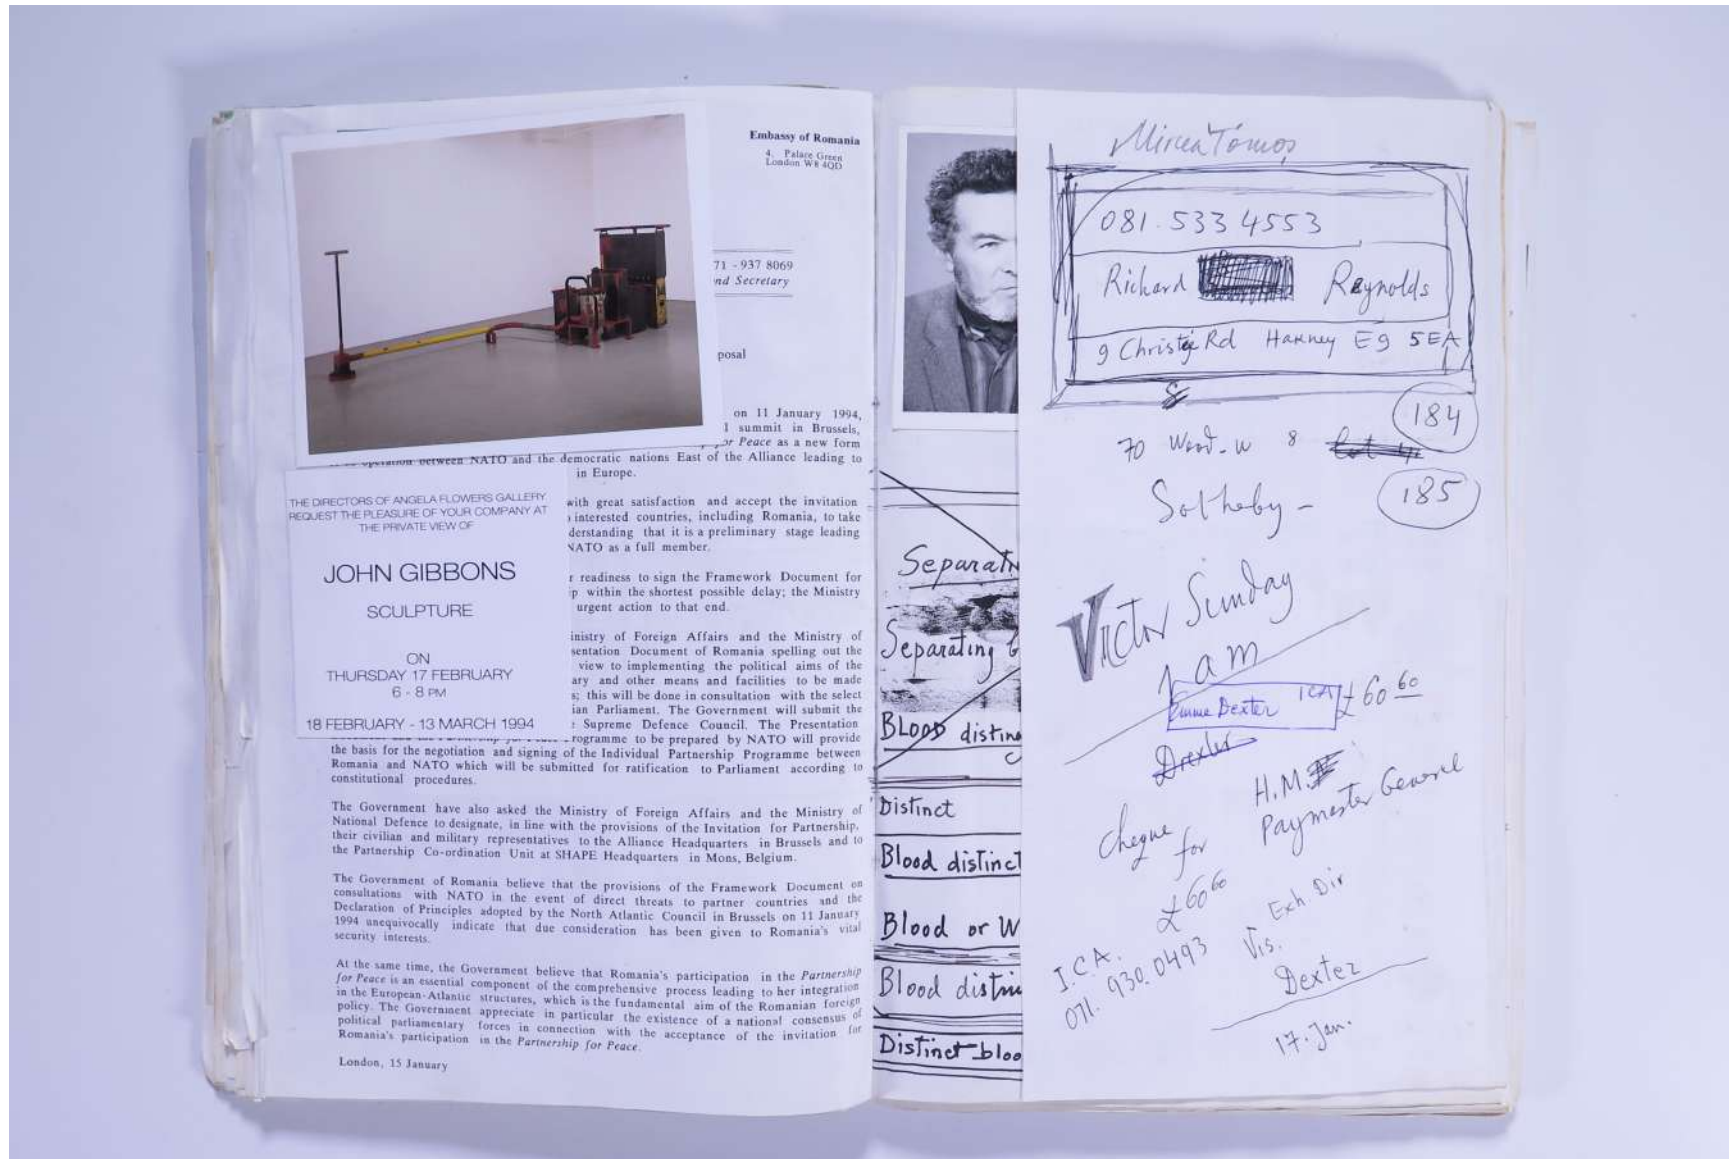 Embassy of Romania
4, Palace Green
London W8 4QD
71 - 937 8069
nd Secretary
posal
on 11 January 1994,
l summit in Brussels,
for Peace as a new form
operation between NATO and the democratic nations East of the Alliance leading to
in Europe.
with great satisfaction and accept the invitation
interested countries, including Romania, to take
derstanding that it is a preliminary stage leading
NATO as a full member.
r readiness to sign the Framework Document for
p within the shortest possible delay; the Ministry
urgent action to that end.
inistry of Foreign Affairs and the Ministry of
sentation Document of Romania spelling out the
view to implementing the political aims of the
ary and other means and facilities to be made
s; this will be done in consultation with the select
ian Parliament. The Government will submit the
Supreme Defence Council. The Presentation
rogramme to be prepared by NATO will provide
the basis for the negotiation and signing of the Individual Partnership Programme between
Romania and NATO which will be submitted for ratification to Parliament according to
constitutional procedures.
The Government have also asked the Ministry of Foreign Affairs and the Ministry of
National Defence to designate, in line with the provisions of the Invitation for Partnership,
their civilian and military representatives to the Alliance Headquarters in Brussels and to
the Partnership Co-ordination Unit at SHAPE Headquarters in Mons, Belgium.
The Government of Romania believe that the provisions of the Framework Document on
consultations with NATO in the event of direct threats to partner countries and the
Declaration of Principles adopted by the North Atlantic Council in Brussels on 11 January
1994 unequivocally indicate that due consideration has been given to Romania's vital
security interests.
At the same time, the Government believe that Romania's participation in the Partnership
for Peace is an essential component of the comprehensive process leading to her integration
in the European-Atlantic structures, which is the fundamental aim of the Romanian foreign
policy. The Government appreciate in particular the existence of a national consensus of
political parliamentary forces in connection with the acceptance of the invitation for
Romania's participation in the Partnership for Peace.
London, 15 January
THE DIRECTORS OF ANGELA FLOWERS GALLERY
REQUEST THE PLEASURE OF YOUR COMPANY AT
THE PRIVATE VIEW OF
JOHN GIBBONS
SCULPTURE
ON
THURSDAY 17 FEBRUARY
6 - 8 PM
18 FEBRUARY - 13 MARCH 1994
Separatin
Separating b
Blood distinc
Distinct
Blood distinct
Blood or W
Blood distin
Distinct bloo
Mircea Tomos
081.533 4553
Richard Reynolds
9 Christie Rd Hackney E9 5EA
184
70 Wood. W 8
185
Sotheby -
Victor Sunday
1 am
Emma Dexter ICA
£60 60
Drexler
H.M.
Cheque for Paymaster General
£60 60
Exh Dir
I.C.A. Vis.
071. 930.0493
Dexter
17. Jan.